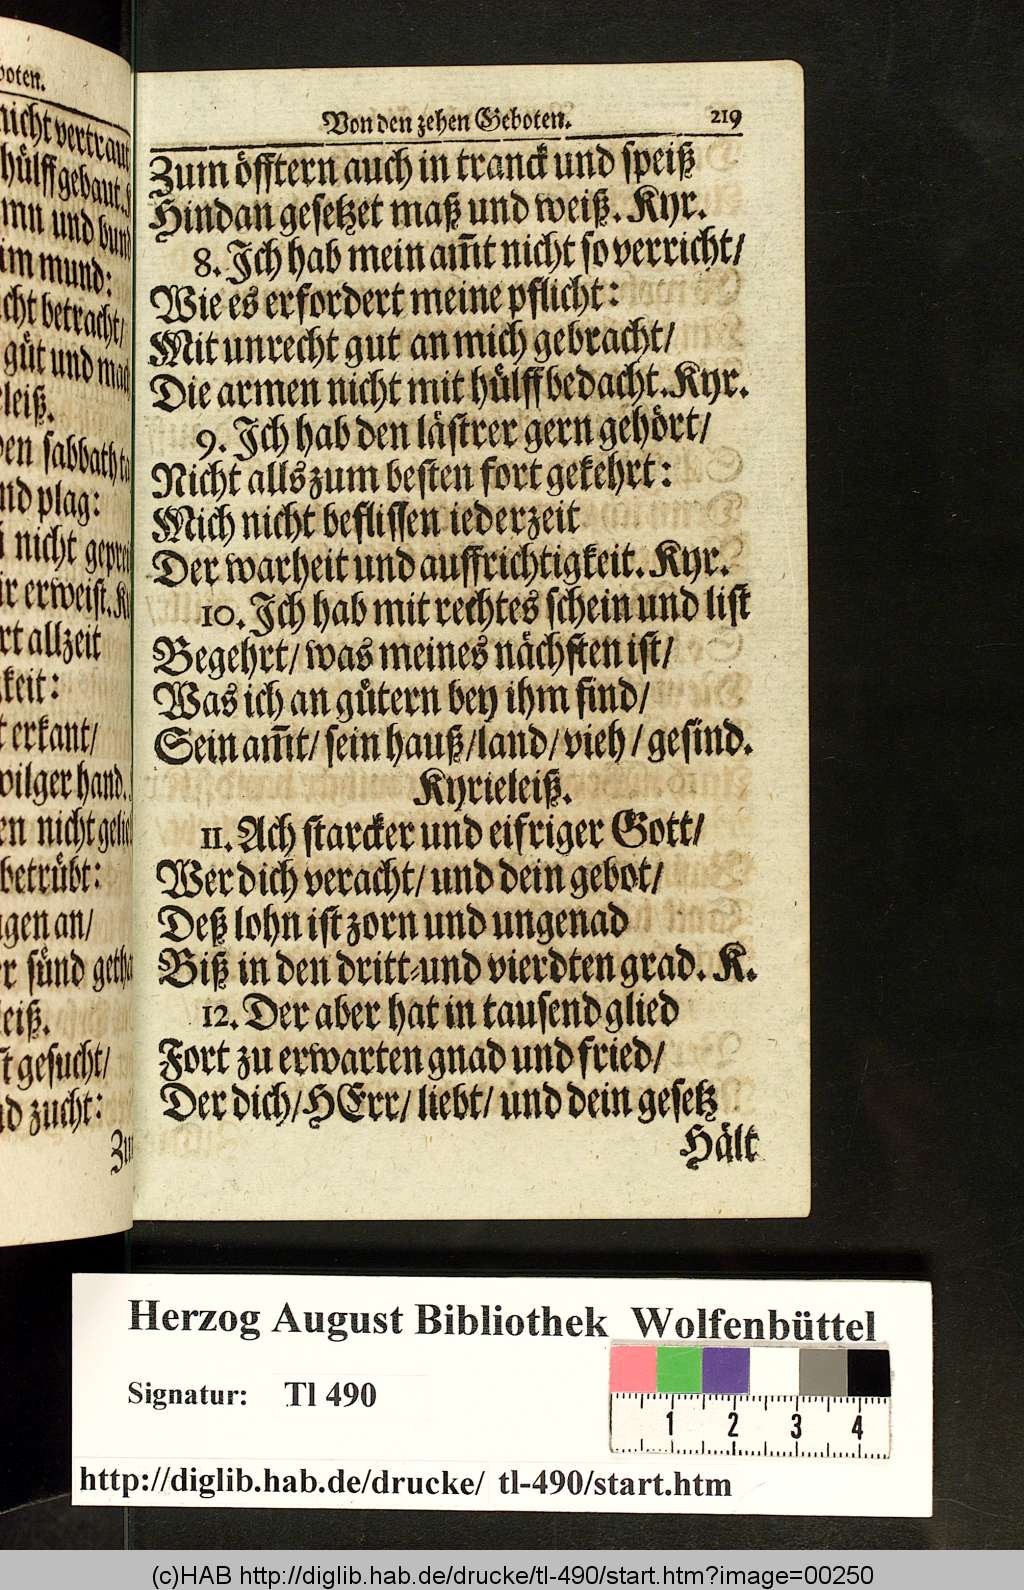 boten.
nicht vertraut
hülff gebaut.
und bund
im mund:
betracht/
güt und
leiß.
sabbath
nd plag:
nicht
erweist.
allzeit
keit:
erkant/
hand.
nicht
betrübt:
an/
sünd
eiß.
gesucht/
zucht:
Zum
Von den zehen Geboten. 219
Zum öfftern auch in tranck und speiß
Hindan gesetzet maß und weiß. Kyr.
8. Ich hab mein am̃t nicht so verricht/
Wie es erfordert meine pflicht:
Mit unrecht gut an mich gebracht/
Die armen nicht mit hülff bedacht. Kyr.
9. Ich hab den lästrer gern gehört/
Nicht alls zum besten fort gekehrt:
Mich nicht beflissen iederzeit
Der warheit und auffrichtigkeit. Kyr.
10. Ich hab mit rechtes schein und list
Begehrt/ was meines nächsten ist/
Was ich an gütern bey ihm find/
Sein am̃t/ sein hauß/ land/ vieh/ gesind.
Kyrieleiß.
11. Ach starcker und eifriger Gott/
Wer dich veracht/ und dein gebot/
Deß lohn ist zorn und ungenad
Biß in den dritt- und vierdten grad. K.
12. Der aber hat in tausend glied
Fort zu erwarten gnad und fried/
Der dich/ HErr/ liebt/ und dein gesetz
Hält
Herzog August Bibliothek Wolfenbüttel
Signatur: Tl 490
1 2 3 4
http://diglib.hab.de/drucke/ tl-490/start.htm
(c)HAB http://diglib.hab.de/drucke/tl-490/start.htm?image=00250